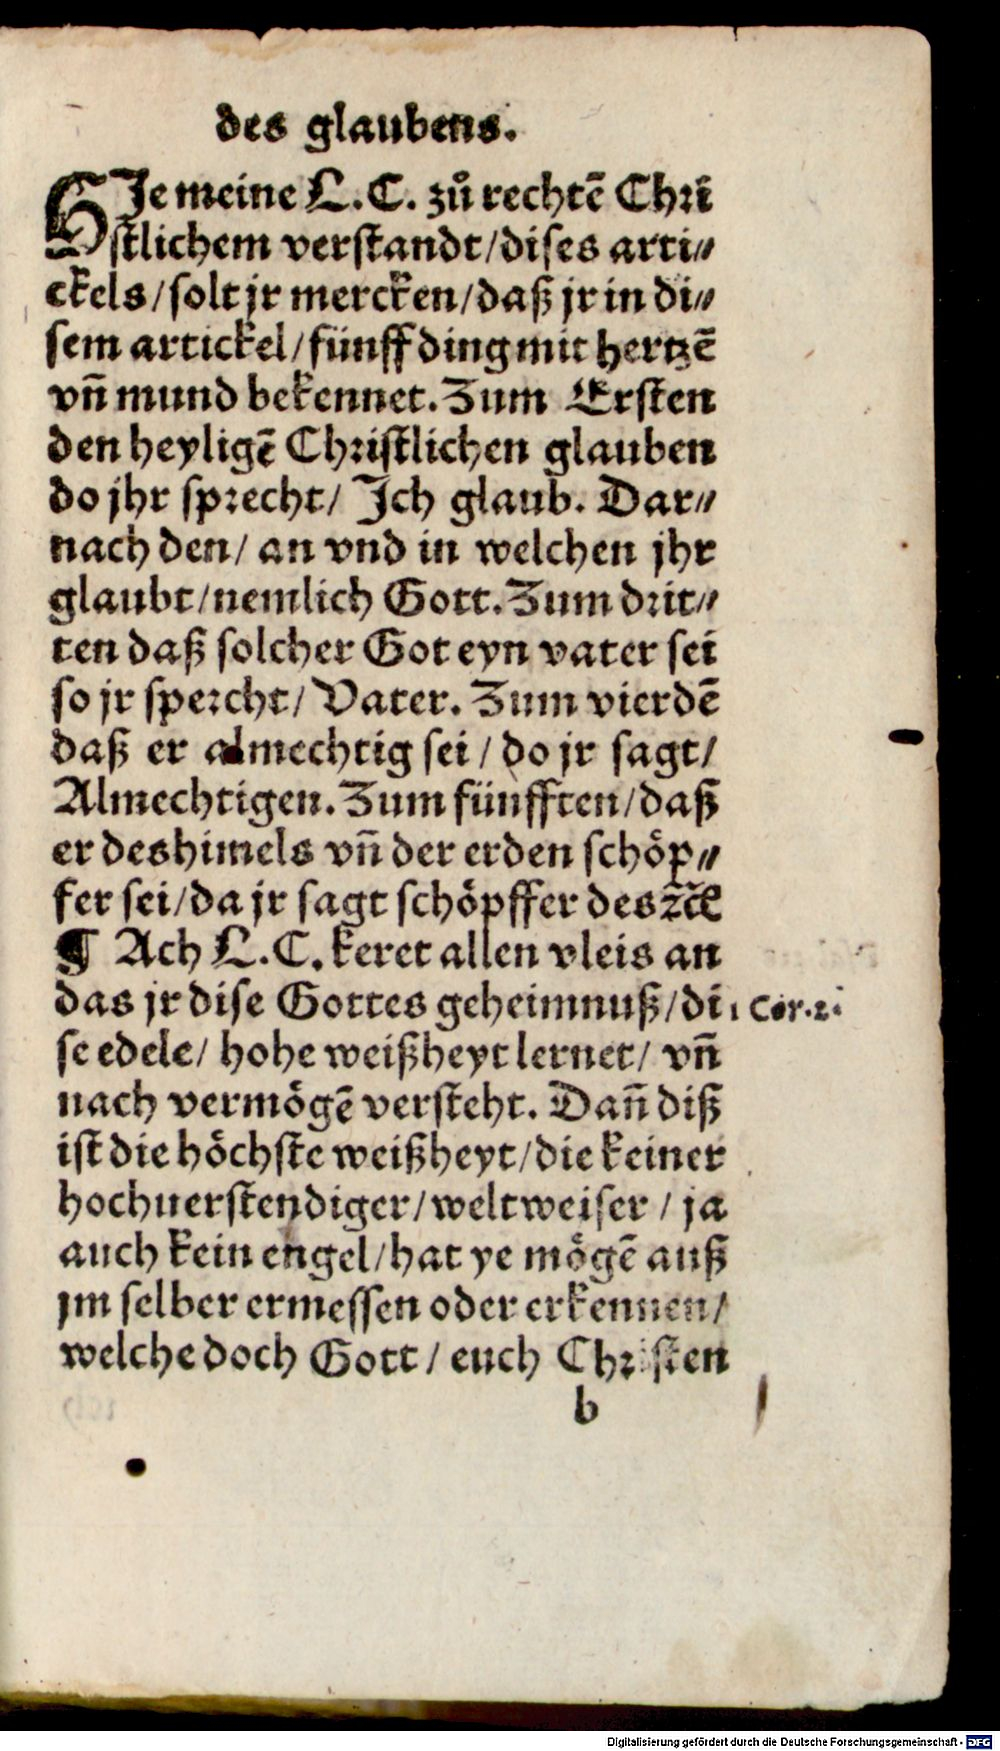 des glaubens.
HJe meine L.C. zů rechtē Chri
stlichem verstandt/dises arti⸗
ckels/solt jr mercken/daß jr in di⸗
sem artickel/fünff ding mit hertzē
vñ mund bekennet. Zum Ersten
den heyligē Christlichen glauben
do jhr sprecht/ Jch glaub. Dar⸗
nach den/ an vnd in welchen jhr
glaubt/nemlich Gott. Zum drit⸗
ten daß solcher Got eyn vater sei
so jr spercht/ Vater. Zum vierdē
daß er almechtig sei/ do jr sagt/
Almechtigen. Zum fünfften/daß
er des himels vñ der erden schöp⸗
fer sei/da jr sagt schöpffer des ꝛc̄
¶ Ach L.C. keret allen vleis an
das jr dise Gottes geheimnuß/di
1 Cor.2.
se edele/ hohe weißheyt lernet/ vñ
nach vermögē versteht. Dañ diß
ist die höchste weißheyt/die keiner
hochuerstendiger/weltweiser/ ja
auch kein engel/hat ye mögē auß
jm selber ermessen oder erkennen/
welche doch Gott/ euch Christen
b
Digitalisierung gefördert durch die Deutsche Forschungsgemeinschaft - DFG